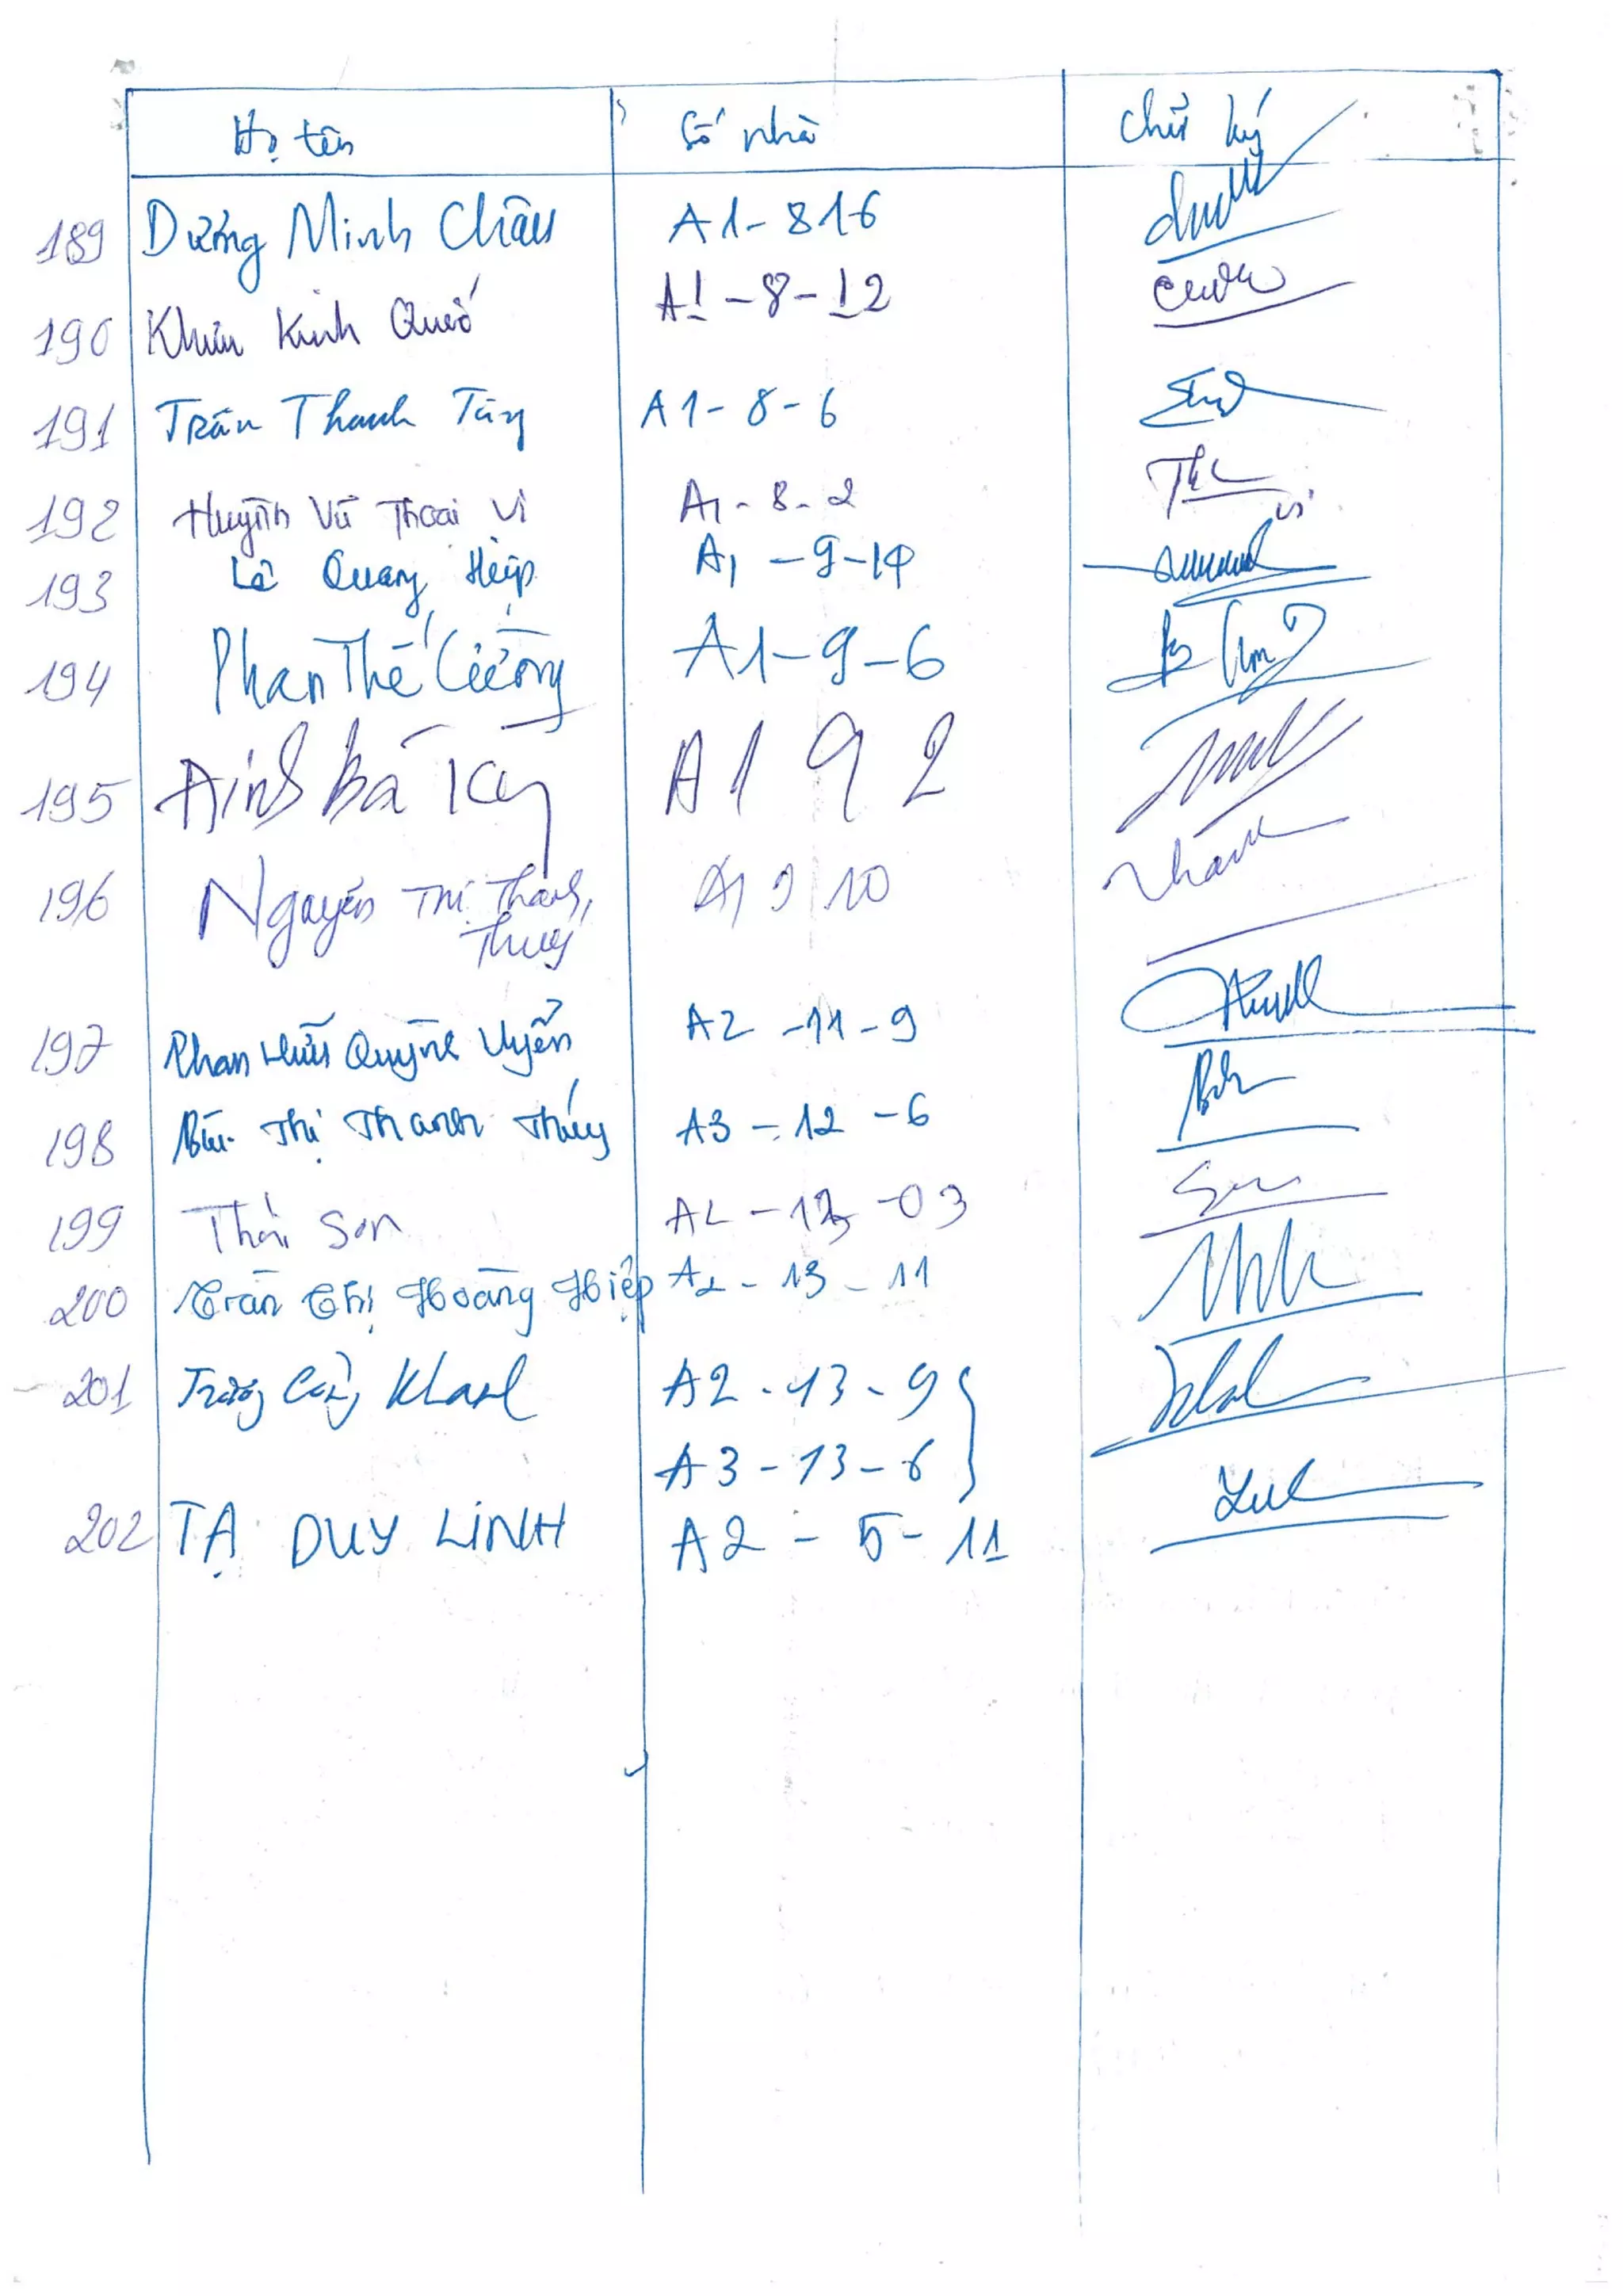 Họ tên Số nhà Chữ ký
189 Dương Minh Châu A1-816
190 Khưu Kinh Quốc A1-8-12
191 Trần Thanh Tùng A1-8-6
192 Huỳnh Vũ Thoại Vi A1-8-2
193 Lê Quang Hiệp A1-9-14
194 Phan Thế Cường A1-9-6
195 Đinh Bá Kỳ A1 9 2
196 Nguyễn Thị Thanh A1 9 10
Thuý
197 Phan Hữu Quỳnh Uyển A2-11-9
198 Bùi Thị Thanh Thúy A3-12-6
199 Thái Sơn A2-12-03
200 Trần Thị Hoàng Hiệp A2-13-11
201 Trương Khanh A2-13-9
A3-13-6
202 TẠ DUY LINH A2-5-11